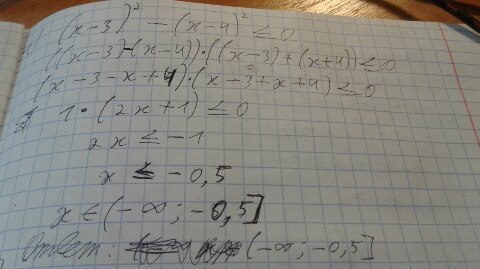 (x-3)² - (x-4)² ≤ 0
((x-3)-(x-4))·((x-3)+(x+4)) ≤ 0
(x-3-x+4)·(x-3+x+4) ≤ 0
1·(2x+1) ≤ 0
2x ≤ -1
x ≤ -0,5
x ∈ (-∞; -0,5]
Ответ: (-∞; -0,5]